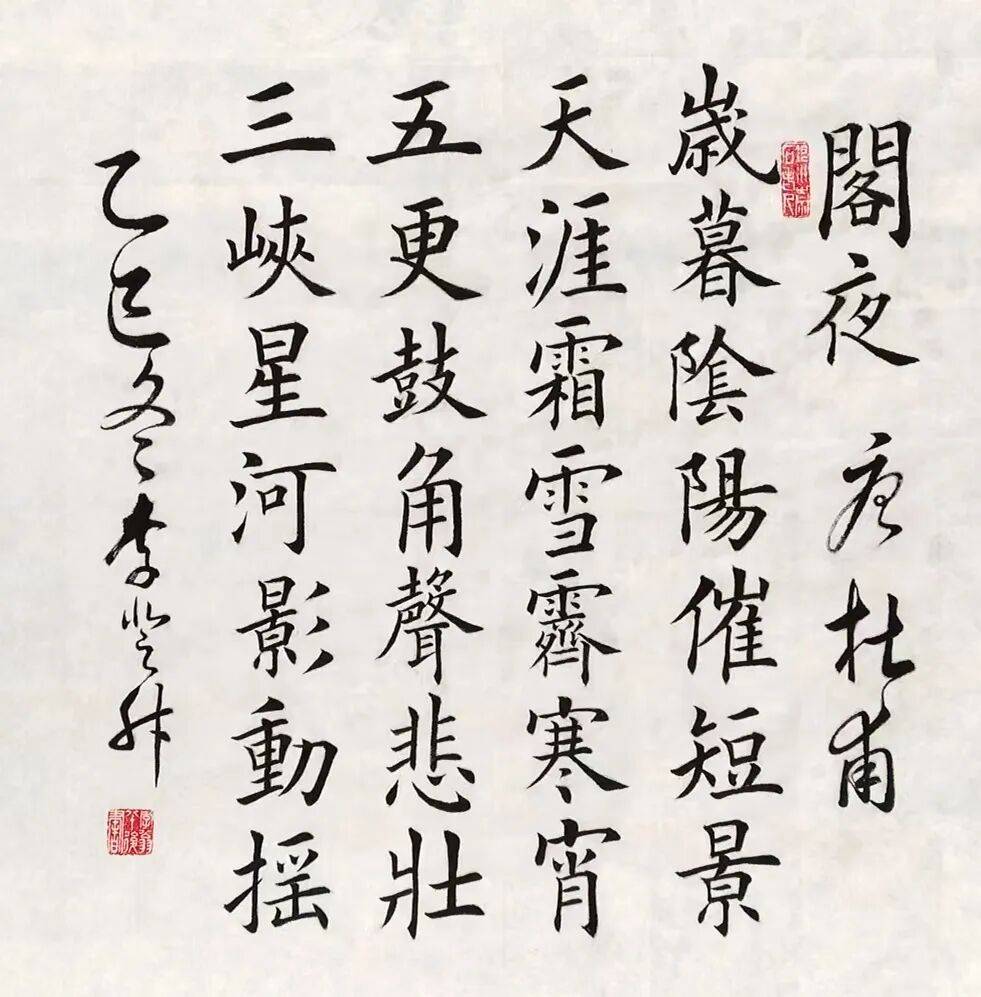 閣夜 唐杜甫
歲暮陰陽催短景
天涯霜雪霽寒宵
五更鼓角聲悲壯
三峽星河影動搖
乙巳冬 李登升